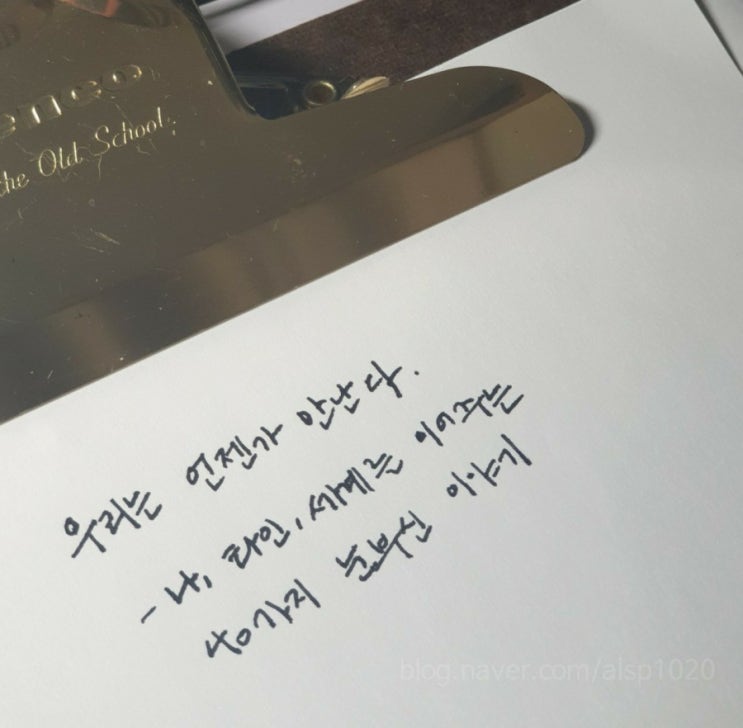 enco
the Old School.
우리는 언젠가 만난다.
- 나, 타인, 세계를 이어주는
40가지 눈부신 이야기
blog.naver.com/alsp1020